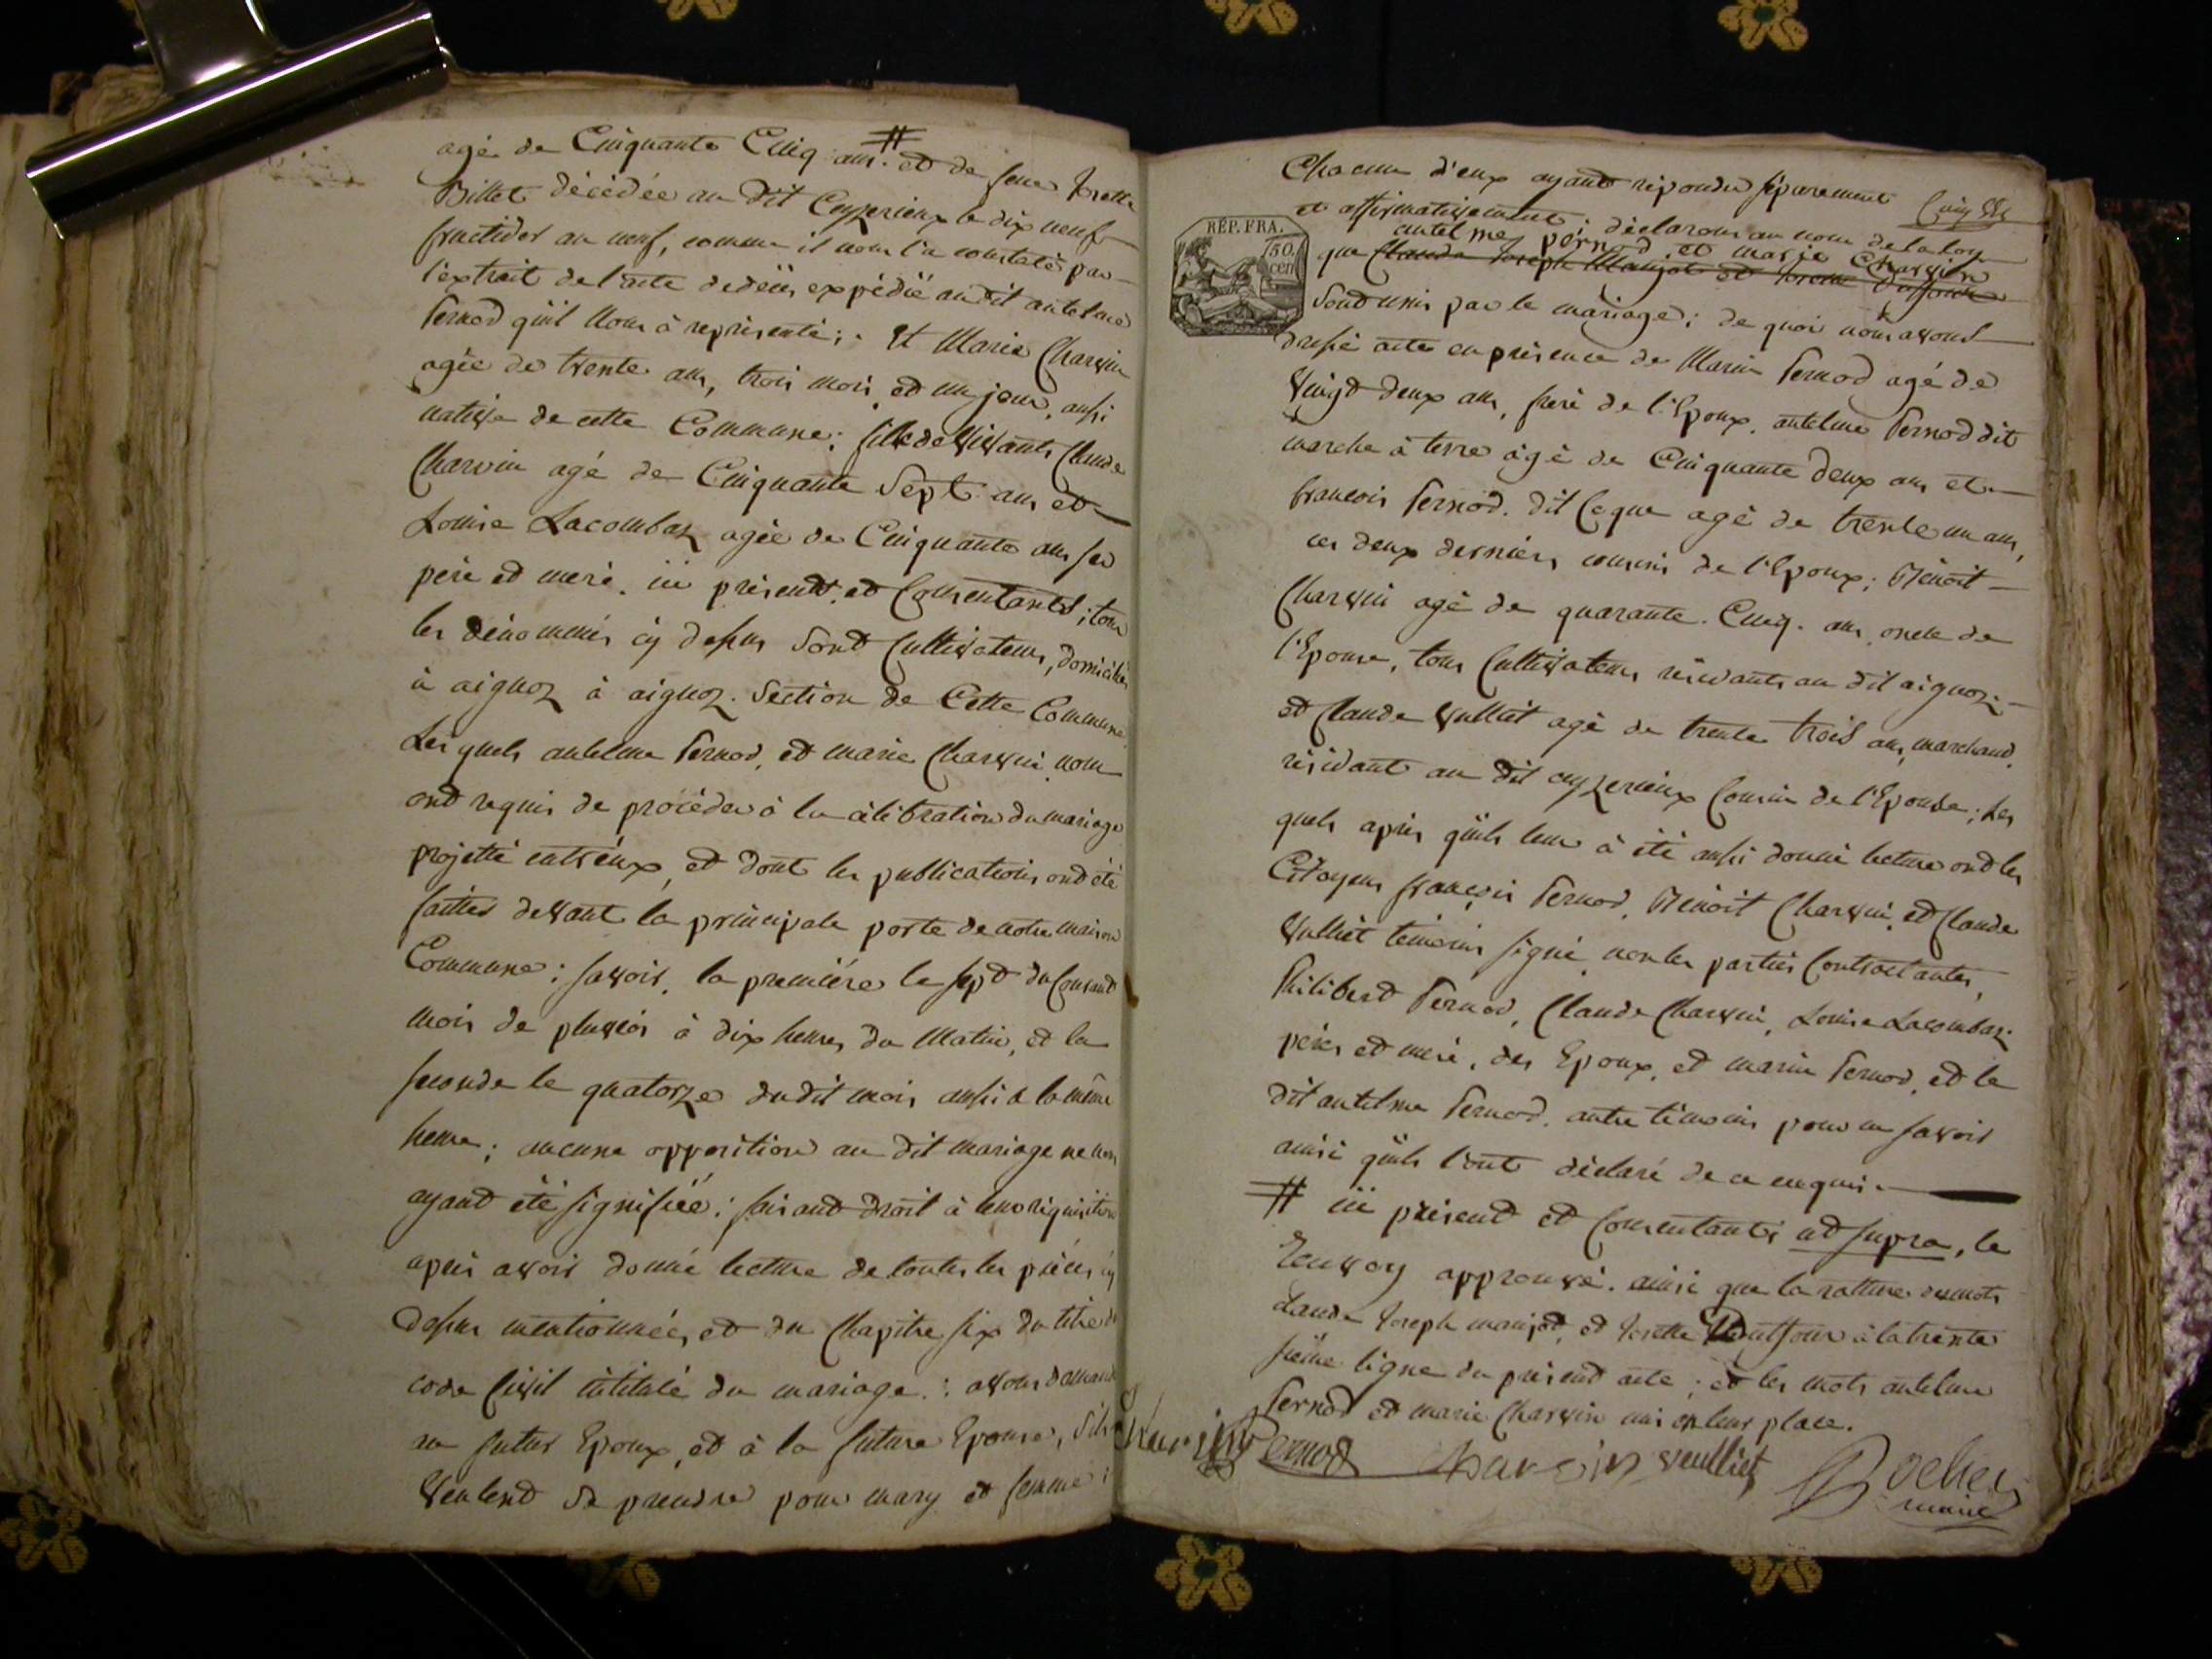 agé de Cinquante Cinq ans. # et de feue Josette
Billet décédée au dit Ceyzerieux le dix neuf
fructidor an neuf, comme il nous l'a constaté par
l'extrait de l'acte de décès expédié au dit antelme
Pernod qu'il nous à représenté; . Et Marie Charvin
agée de trente ans, trois mois, et un jour, aussi
native de cette Commune; fille de vivants Claude
Charvin agé de Cinquante Sept ans et
Louise Lacombaz agée de Cinquante ans ses
pere et mere. ici présents, et Consentants; tous
les dénommés cy dessus sont Cultivateurs, domiciliés
à aignoz à aignoz. Section de Cette Commune.
Lesquels antelme Pernod, et marie Charvin nous
ont requis de procéder à la célébration du mariage
projetté entréux, et dont les publications ont été
faittes devant la principale porte de notre maison
Commune; savoir, la première le sept du Courant
mois de pluviôs à dix heures du Matin, et la
seconde le quatorze du dit mois aussi a la même
heure; aucune opposition au dit mariage ne nous
ayant été signifiée; faisant droit à leur réquisition
après avoir donné lecture de toutes les pièces cy
dessus mentionnées, et du Chapitre six du titre du
code Civil intitulé du mariage. : avons demandé
au futur Epoux, et à la future Epouse, S'ils
veulent se prendre pour mary et femme;
Chacun d'eux ayant répondu séparement
et affirmativement; déclarons au nom de la loy
antelme pernod et marie Charvin
que Claude Joseph Manjot et Josette Dufour
sont unis par le mariage; de quoi nous avons
dressé acte en présence de Marin Pernod agé de
vingt-deux ans, frere de l'Epoux, antelme Pernod dit
marche à terre agé de Cinquante deux ans et
francois Pernod. dit Ceque agé de trente un ans,
ces deux derniers cousins de l'Epoux; Benoit
Charvin agé de quarante. Cinq. ans oncle de
l'Epouse, tous Cultivateurs résidants au dit aignoz;
et Claude Vulliet agé de trente trois ans, marchand,
résidant au dit ceyzerieux Cousin de l'Epouse; Les
quels après qu'ils leur à été aussi donné lecture ont les
Citoyens françois Pernod, Benoit Charvin, et Claude
Vulliet témoins signé, non les parties Contractantes,
Philibert Pernod, Claude Charvin, Louise Lacombaz
péres et mere, des Epoux, et marin Pernod, et le
dit antelme Pernod. autre témoins pour ne savoir
ainsi qu'ils l'ont déclaré de ce enquis.
# ici présent et Consentants ut supra, le
renvoy approuvé. ainsi que la rature des mots
claude Joseph manjot, et Josette Dutfour à la trente
sixième ligne du présent acte; et les mots antelme
Pernod et marie Charvin mis en leur place.
Pernod Charvin veulliet Bochet
maire
RÉP. FRA.
50.
cen